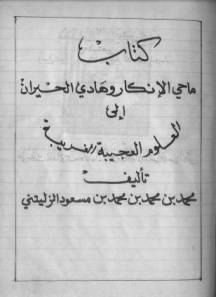 كتاب
ماحي الإنكار وهادي الحيران
إلى
العلوم العجيبة الغريبة
تأليف
محمد بن محمد بن محمد بن مسعود الزليتني